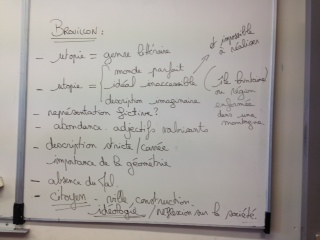 BROUILLON :
- utopie = genre littéraire
≠ impossible à réaliser
- utopie = monde parfait
idéal inaccessible
description imaginaire
île lointaine
ou région
enfermée
dans une
montagne
- représentation fictive?
- abondance adjectifs valorisants
- description stricte / carrée
importance de la géométrie
- absence du Mal
- citoyen - ville, construction.
idéologie / réflexion sur la société.